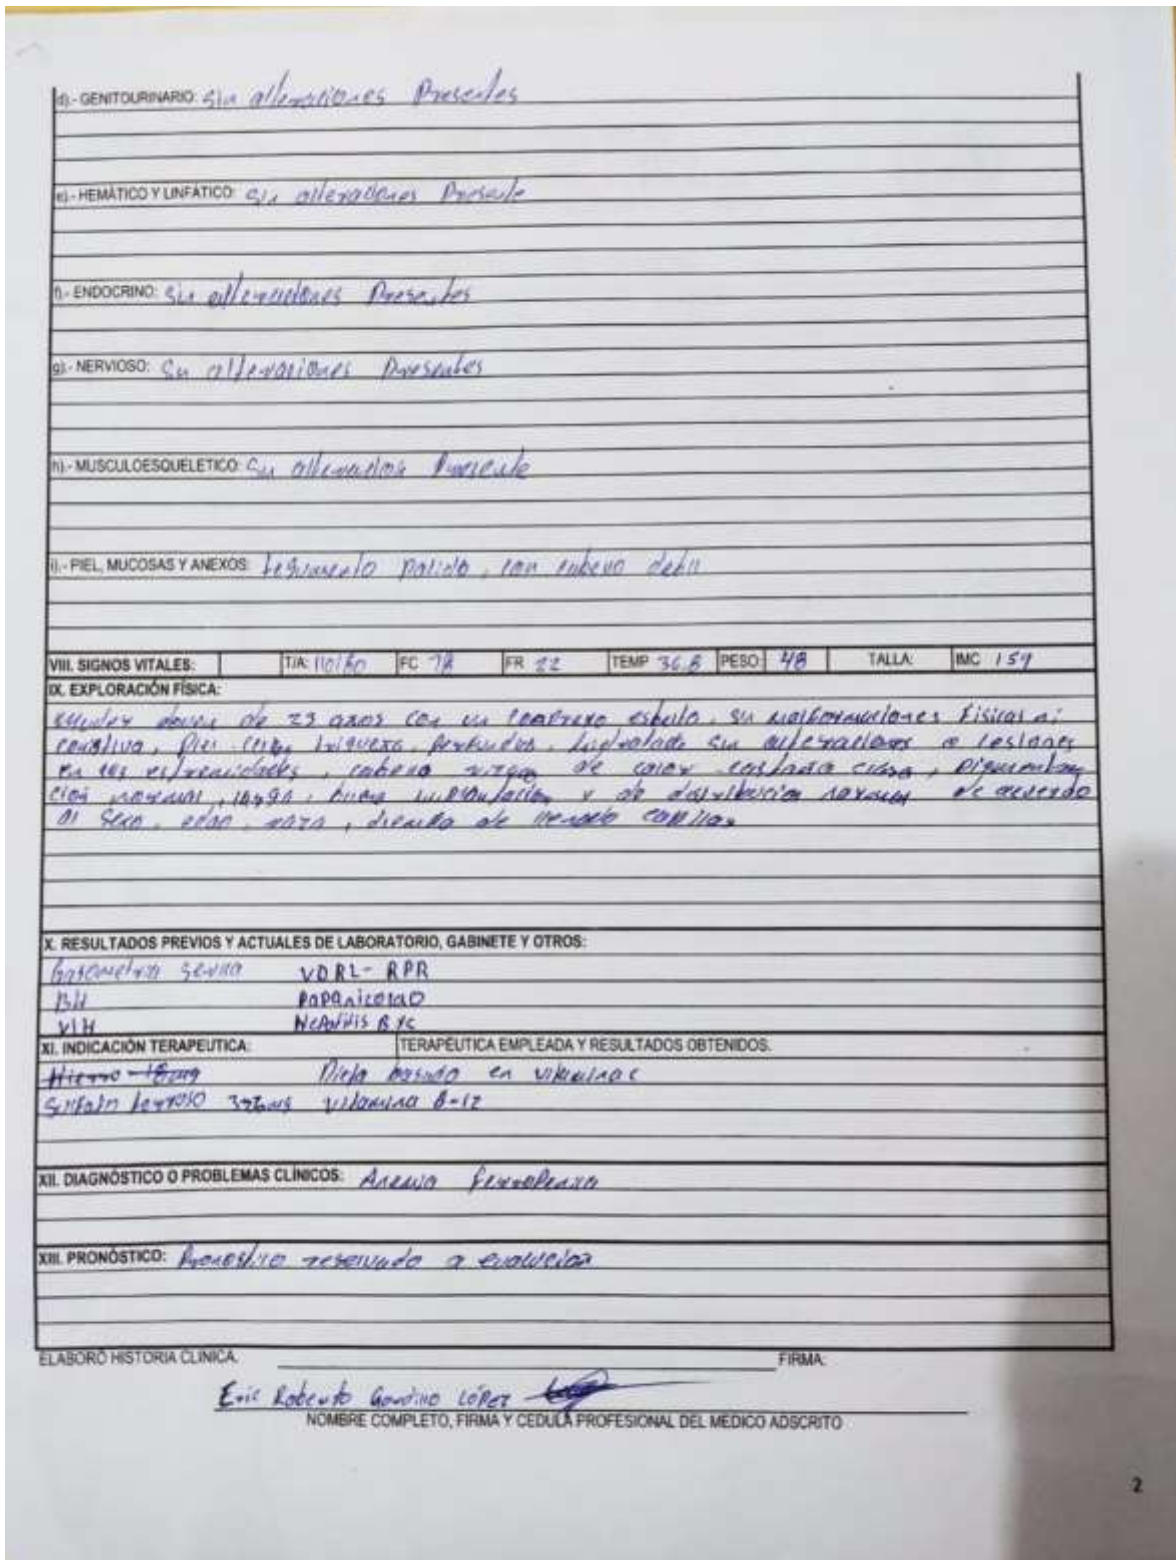 d).- GENITOURINARIO: Sin alteraciones Presentes
e).- HEMÁTICO Y LINFÁTICO: Sin alteraciones Presente
f).- ENDOCRINO: Sin alteraciones Presentes
g).- NERVIOSO: Sin alteraciones Presentes
h).- MUSCULOESQUELETICO: Sin alteracion Presente
i).- PIEL, MUCOSAS Y ANEXOS: tegumento palido, con cabello debil
VIII. SIGNOS VITALES: T/A: 110/80 FC 78 FR 22 TEMP 36.8 PESO: 48 TALLA: IMC 159
IX. EXPLORACIÓN FÍSICA:
de 23 años con un esbelto, sin malformaciones Fisicas ni
Piel hidratada sin alteraciones o lesiones
en las extremidades, cabello de color castaño claro, pigmentan
cion normal, larga, buena implantacion y de distribucion normal de acuerdo
al sexo, edad, raza, de llenado capilar
X. RESULTADOS PREVIOS Y ACTUALES DE LABORATORIO, GABINETE Y OTROS:
VDRL- RPR
BH Papanicolao
VIH Hepatitis B y C
XI. INDICACIÓN TERAPEUTICA: TERAPÉUTICA EMPLEADA Y RESULTADOS OBTENIDOS.
Hierro - 18mg Dieta basado en vitamina c
ferroso vitamina B-12
XII. DIAGNÓSTICO O PROBLEMAS CLÍNICOS: Anemia
XIII. PRONÓSTICO: Pronostico reservado a evolucion
ELABORÓ HISTORIA CLINICA. FIRMA:
Eric Roberto López
NOMBRE COMPLETO, FIRMA Y CEDULA PROFESIONAL DEL MEDICO ADSCRITO
2